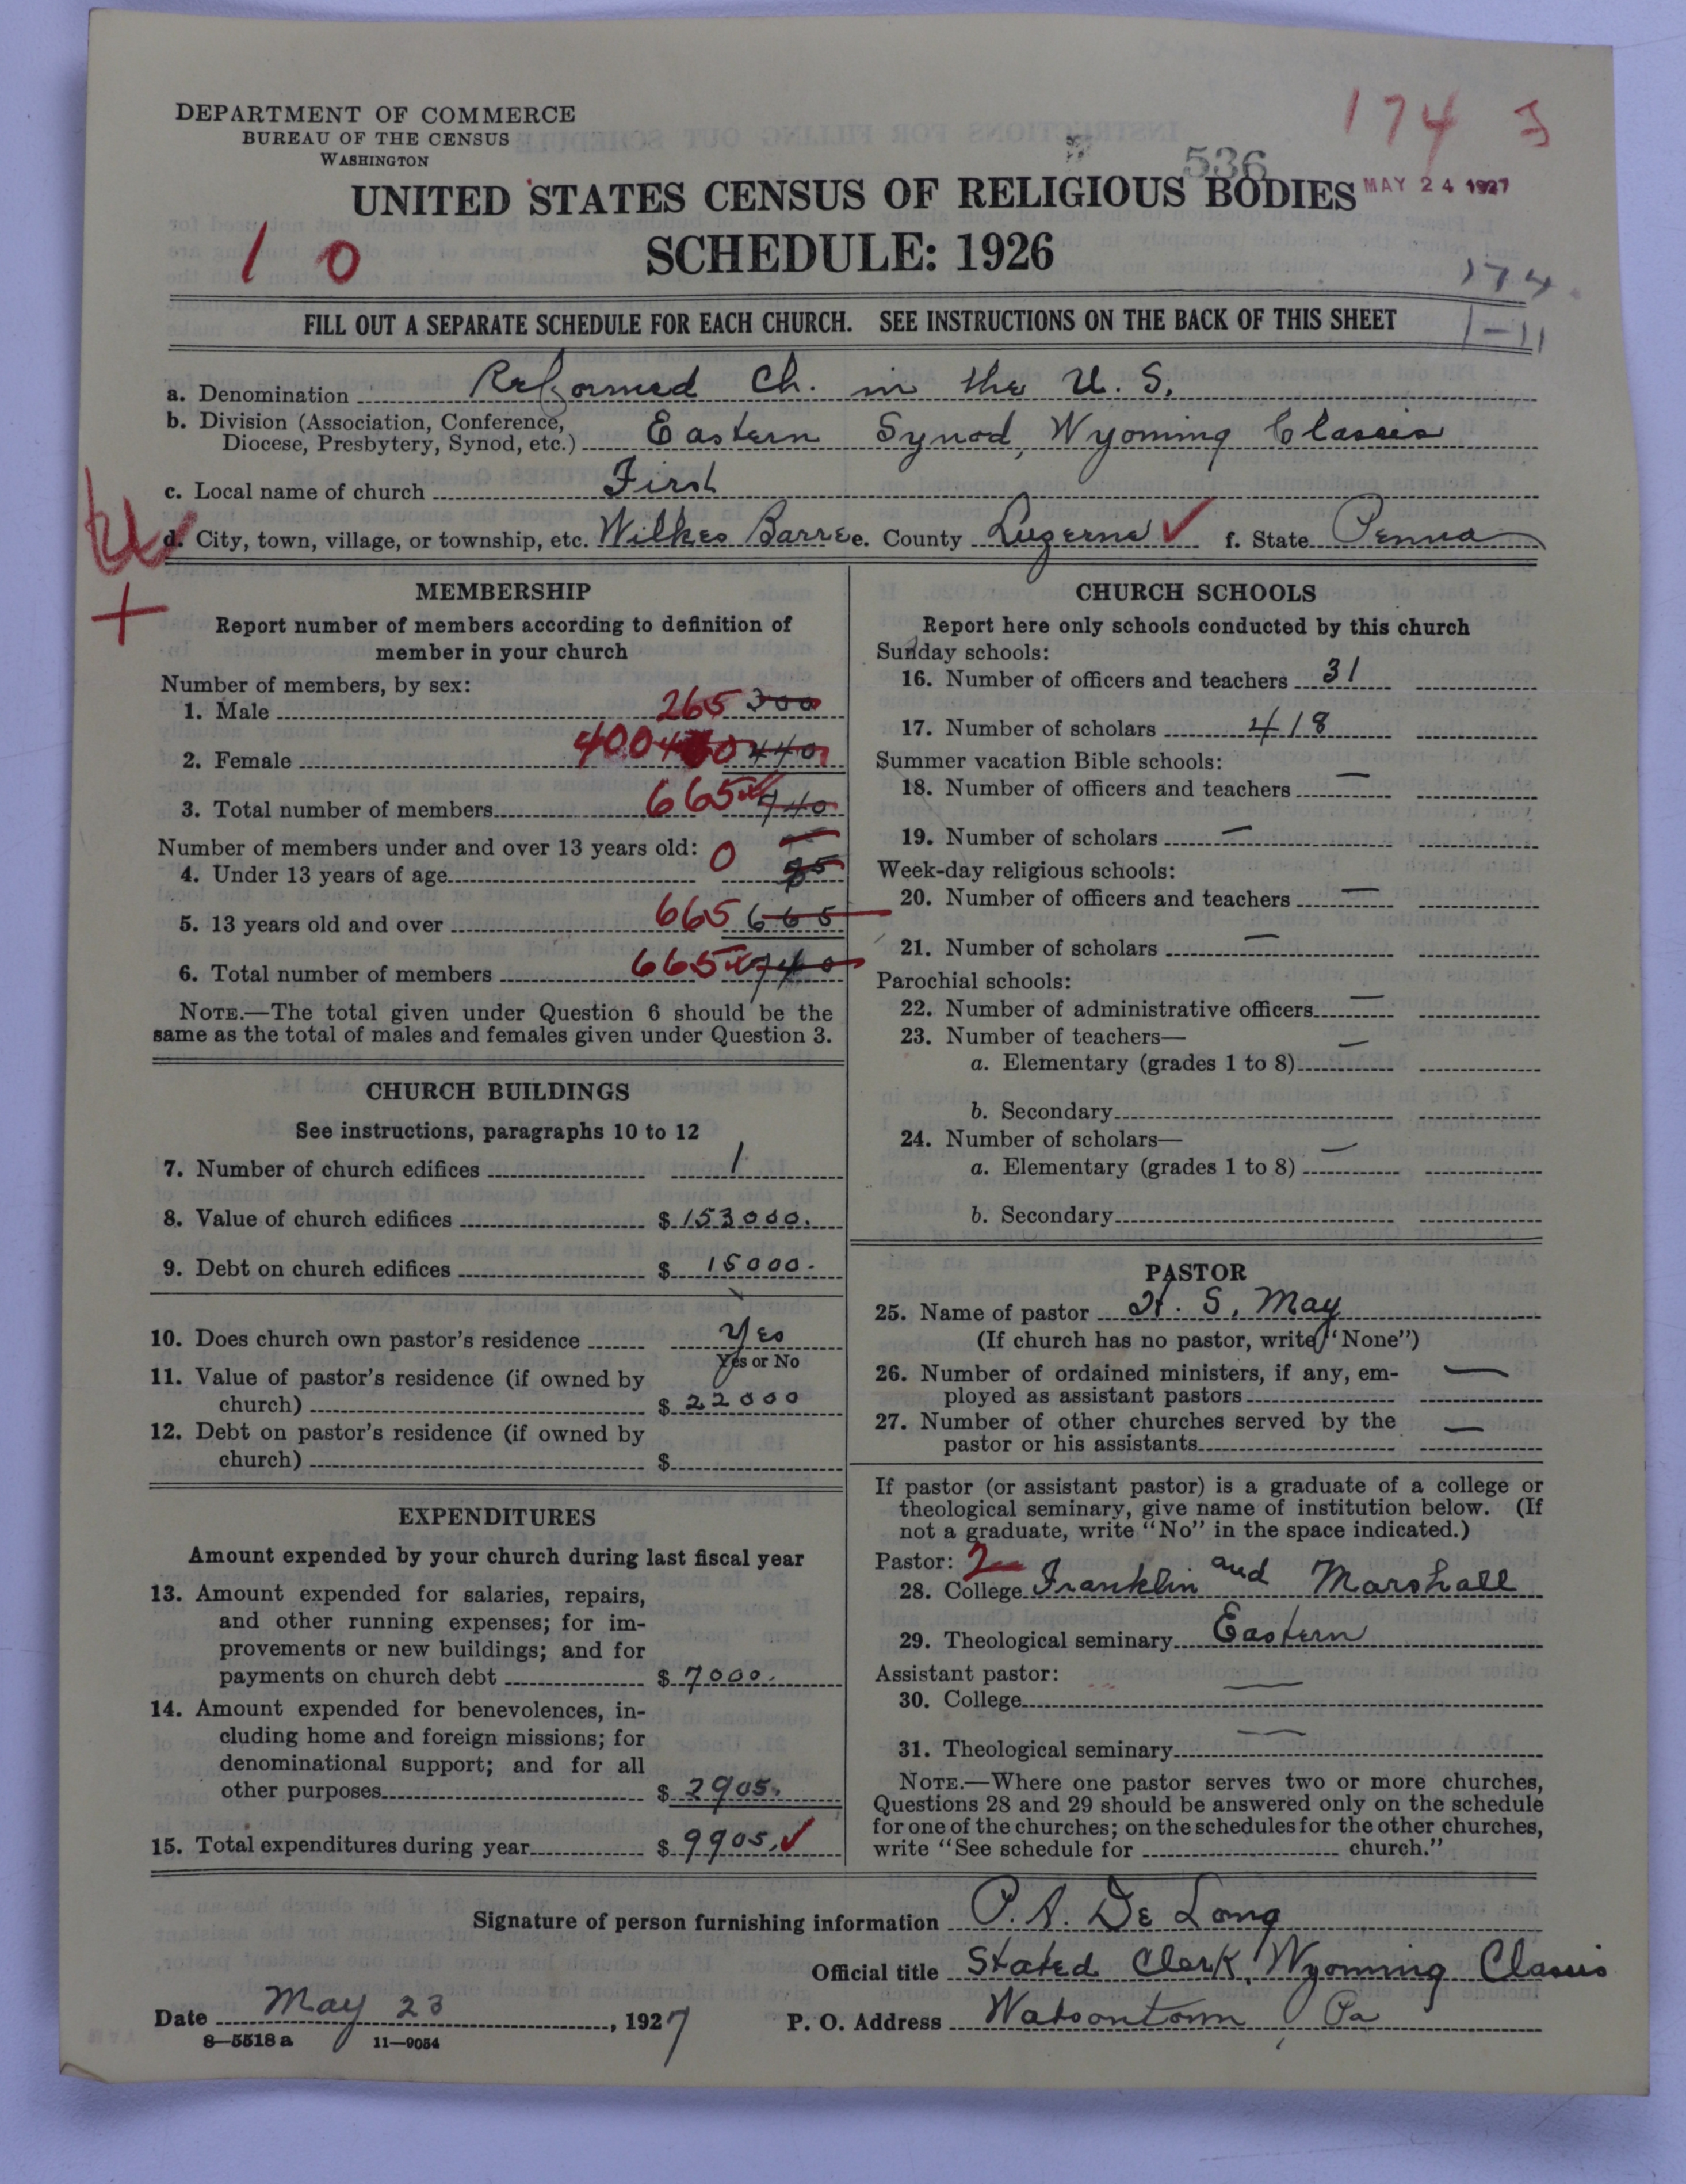 DEPARTMENT OF COMMERCE
BUREAU OF THE CENSUS
WASHINGTON
174
536
MAY 24 1927
UNITED STATES CENSUS OF RELIGIOUS BODIES
SCHEDULE: 1926
1 0
174
1-11
FILL OUT A SEPARATE SCHEDULE FOR EACH CHURCH. SEE INSTRUCTIONS ON THE BACK OF THIS SHEET
a. Denomination Reformed Ch. in the U. S.
b. Division (Association, Conference, Diocese, Presbytery, Synod, etc.) Eastern Synod, Wyoming Classis
c. Local name of church First
d. City, town, village, or township, etc. Wilkes Barre e. County Luzerne ✓ f. State Penna
MEMBERSHIP
Report number of members according to definition of
member in your church
Number of members, by sex:
1. Male 265 300
2. Female 400 440
3. Total number of members 665 740
Number of members under and over 13 years old:
4. Under 13 years of age 0
5. 13 years old and over 665 665
6. Total number of members 665 740
NOTE.—The total given under Question 6 should be the
same as the total of males and females given under Question 3.
CHURCH BUILDINGS
See instructions, paragraphs 10 to 12
7. Number of church edifices 1
8. Value of church edifices $ 153000.
9. Debt on church edifices $ 15000.
10. Does church own pastor's residence Yes
Yes or No
11. Value of pastor's residence (if owned by
church) $ 22000
12. Debt on pastor's residence (if owned by
church) $
EXPENDITURES
Amount expended by your church during last fiscal year
13. Amount expended for salaries, repairs,
and other running expenses; for im-
provements or new buildings; and for
payments on church debt $ 7000.
14. Amount expended for benevolences, in-
cluding home and foreign missions; for
denominational support; and for all
other purposes $ 2905.
15. Total expenditures during year $ 9905. ✓
CHURCH SCHOOLS
Report here only schools conducted by this church
Sunday schools:
16. Number of officers and teachers 31
17. Number of scholars 418
Summer vacation Bible schools:
18. Number of officers and teachers —
19. Number of scholars —
Week-day religious schools:
20. Number of officers and teachers —
21. Number of scholars —
Parochial schools:
22. Number of administrative officers —
23. Number of teachers— —
a. Elementary (grades 1 to 8)
b. Secondary
24. Number of scholars—
a. Elementary (grades 1 to 8) —
b. Secondary
PASTOR
25. Name of pastor H. S. May
(If church has no pastor, write "None")
26. Number of ordained ministers, if any, em-
ployed as assistant pastors —
27. Number of other churches served by the
pastor or his assistants —
If pastor (or assistant pastor) is a graduate of a college or
theological seminary, give name of institution below. (If
not a graduate, write "No" in the space indicated.)
Pastor: 2
28. College Franklin and Marshall
29. Theological seminary Eastern
Assistant pastor:
30. College —
31. Theological seminary —
NOTE.—Where one pastor serves two or more churches,
Questions 28 and 29 should be answered only on the schedule
for one of the churches; on the schedules for the other churches,
write "See schedule for church."
Signature of person furnishing information P. A. De Long
Official title Stated Clerk, Wyoming Classis
Date May 23, 1927
P. O. Address Watsontown, Pa
8—5518 a 11—9054